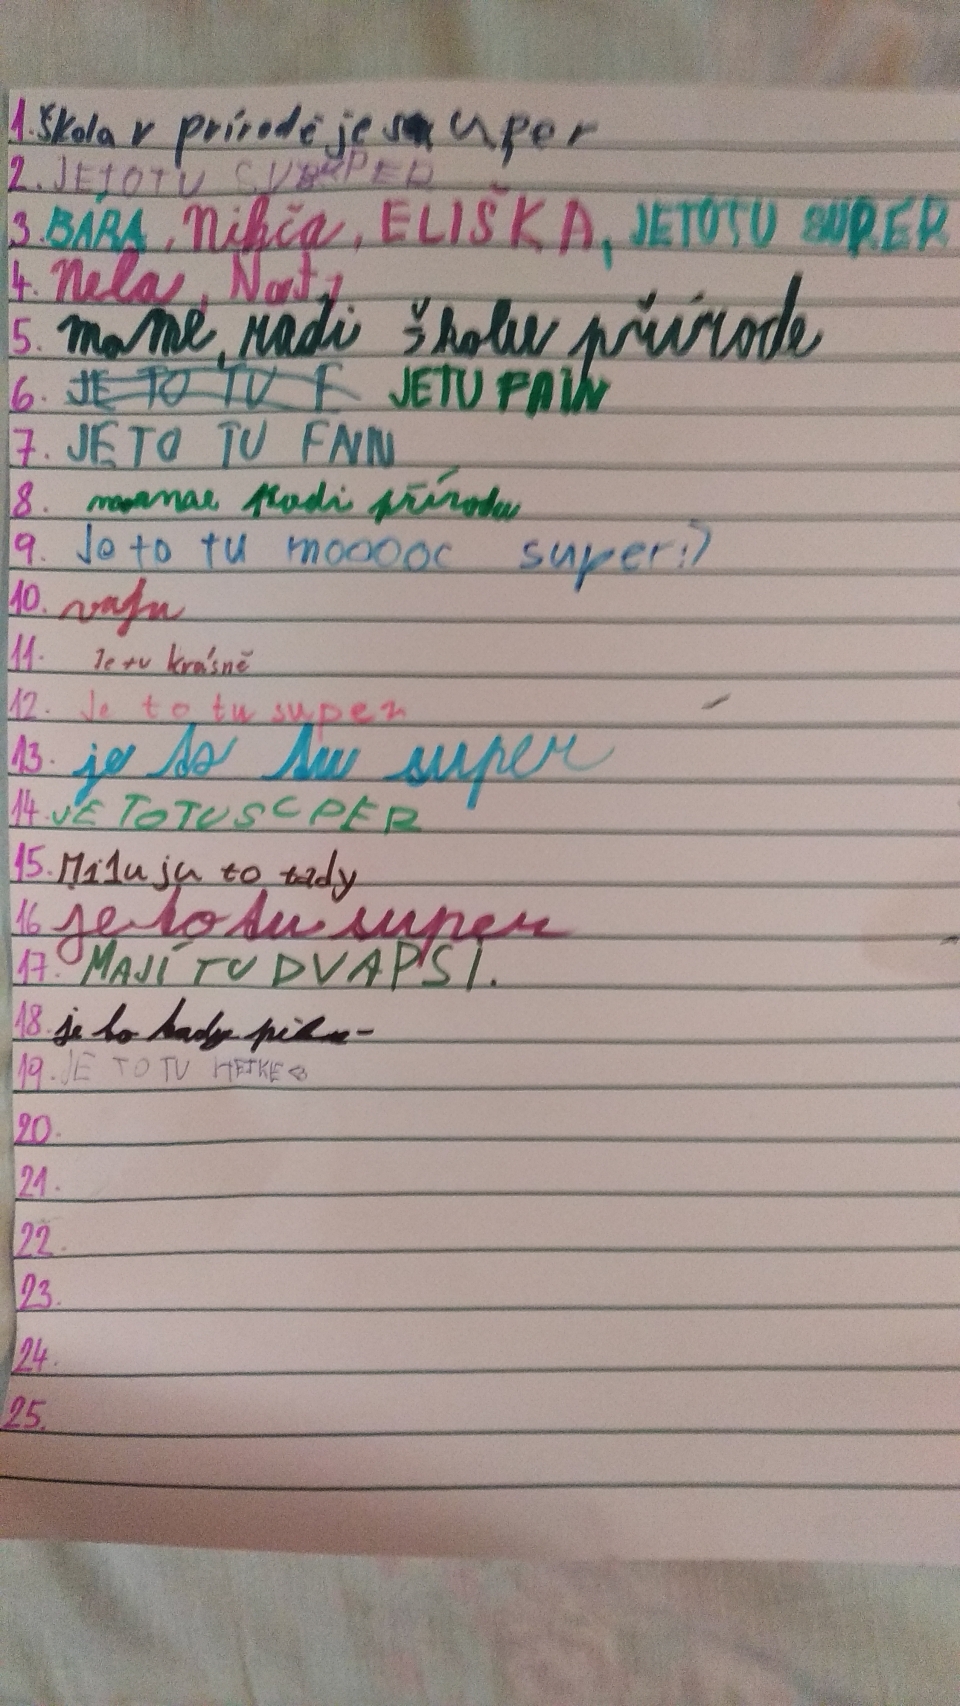 1. Škola v prírodě je super
2. JETOTU SUPER
3. BÁRA, Nikča, ELIŠKA, JETOTU SUPER
4. Nela,
5. máme, radi školu přírode
6. JE TO TU F JETU FAIN
7. JE TO TU FNN
8. radi přírodu
9. Je to tu mooooc super:)
10.
11. Je tu krásně
12. Je to tu super
13. je to tu super
14. JE TOTUSUPER
15. Miluju to tady
16 je to tu super
17. MAJÍ TU DVAPSI.
18. je to tady
19. JE TO TU HETKE
20.
21.
22.
23.
24.
25.